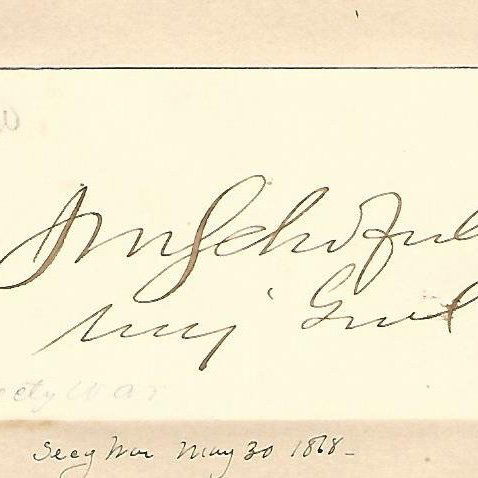 JMSchofiel
Maj Genl
ecty War
Secy War May 30 1868-